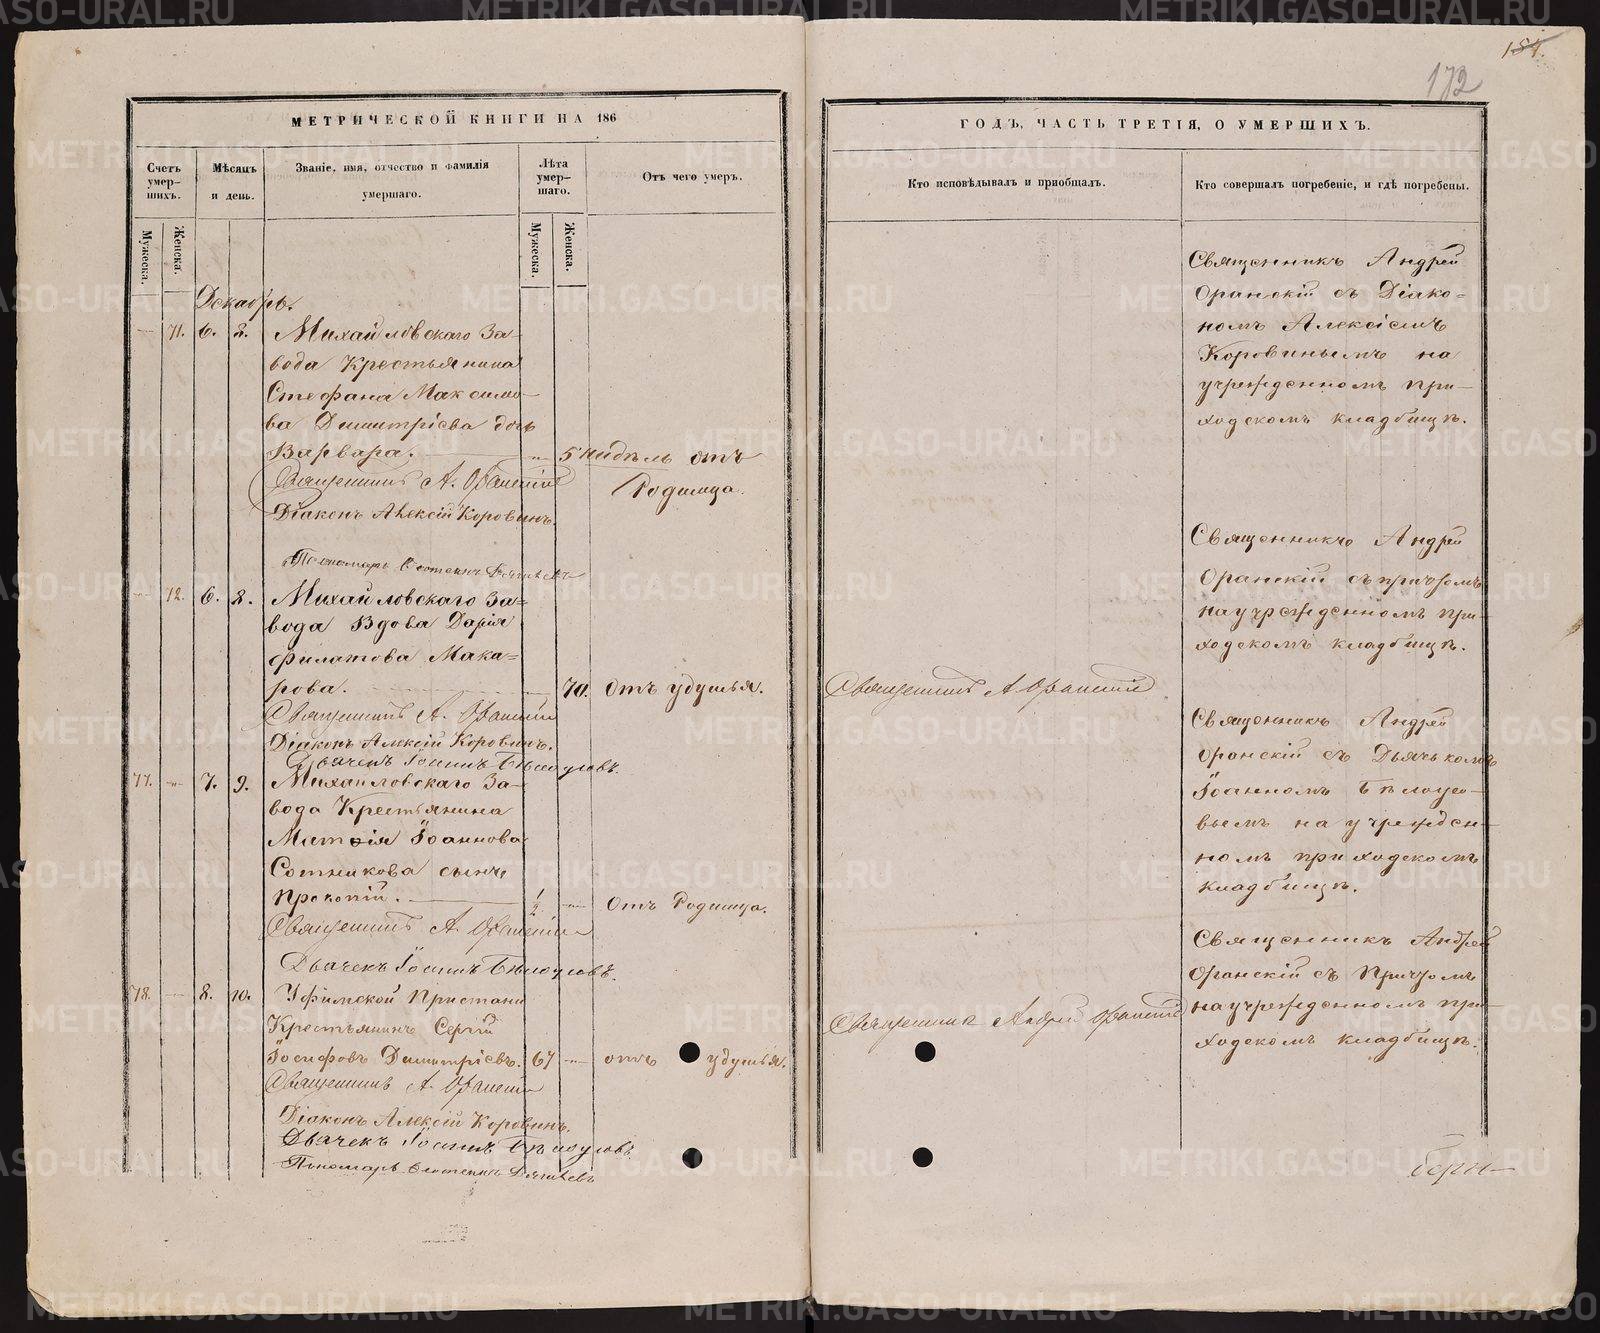 184.
172
МЕТРИЧЕСКОЙ КНИГИ НА 186
Счетъ умер-шихъ.
Мѣсяцъ и день.
Званіе, имя, отчество и фамилія умершаго.
Лѣта умер-шаго.
Отъ чего умеръ.
Мужеска.
Женска.
Мужеска.
Женска.
Декабрь.
71. 6. 8. Михайловскаго За-
вода Крестьянина
Стефана Максимо-
ва Димитріева дочь
Варвара. 5 нидѣль отъ
Родимца.
Священникъ А. Оранскій
Діаконъ Алексій Коровинъ.
Пономарь
72. 6. 8. Михайловскаго За-
вода Вдова Дарія
Филатова Мака-
рова. 70. Отъ удушья.
Священникъ А. Оранскій
Діаконъ Алексій Коровинъ.
Дьячекъ Іоаннъ Бѣлоусовъ.
77. 7. 9. Михаиловскаго За-
вода Крестьянина
Матѳія Іоаннова
Сотникова сынъ
Прокопій. 1/2 Отъ Родимца.
Священникъ А. Оранскій
Дьячекъ Іоаннъ Бѣлоусовъ.
78. 8. 10. Уфимской Пристани
Крестьянинъ Сергій
Іосифовъ Димитріевъ. 67 отъ удушья.
Священникъ А. Оранскій
Діаконъ Алексій Коровинъ.
Дьячекъ Іоаннъ Бѣлоусовъ
Пономарь
ГОДЪ, ЧАСТЬ ТРЕТІЯ, О УМЕРШИХЪ.
Кто исповѣдывалъ и приобщалъ.
Кто совершалъ погребеніе, и гдѣ погребены.
Священникъ Андрей
Оранскій съ Діако=
номъ Алексіемъ
Коровинымъ на
учрежденномъ при-
ходскомъ кладбищѣ.
Священникъ Андрей
Оранскій съ причтомъ
на учрежденномъ при-
ходскомъ кладбищѣ.
Священникъ А Оранскій
Священникъ Андрей
Оранскій съ Дьячькомъ
Іоанномъ Бѣлоусо-
вымъ на учрежден-
номъ приходскомъ
кладбищѣ.
Священникъ Андрей
Оранскій съ Причтомъ
на учрежденномъ при-
ходскомъ кладбищѣ.
Священникъ Андрей Оранскій
METRIKI.GASO-URAL.RU